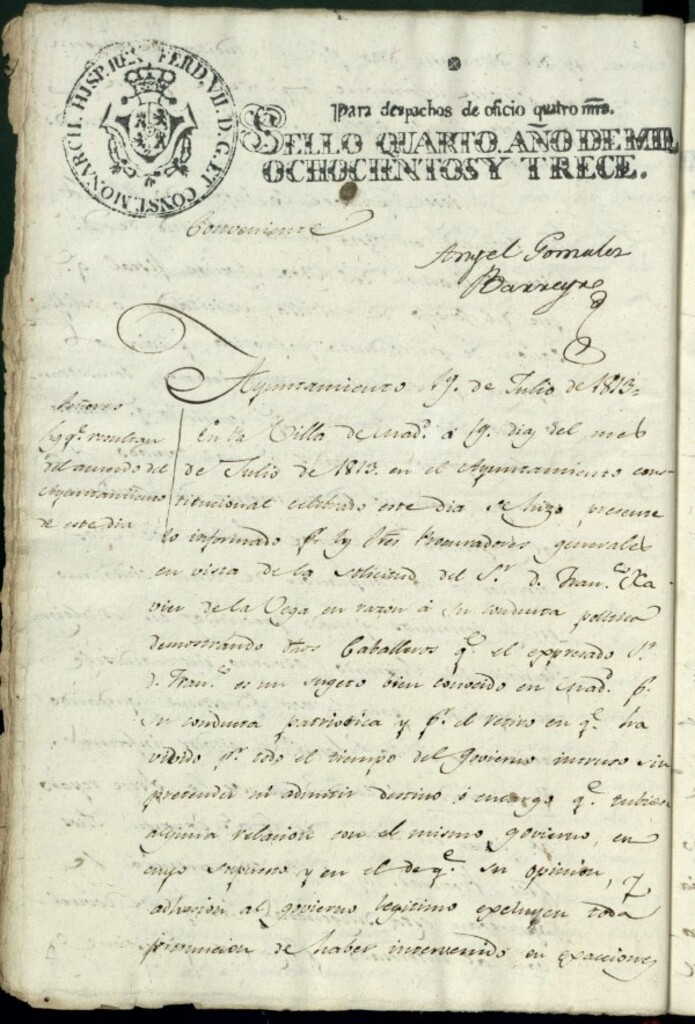 HISP. REX. FERD. VII. D. G. ET CONST. MONARCH.
Para despachos de oficio quatro mrs.
SELLO QUARTO. AÑO DE MIL
OCHOCIENTOS Y TRECE.
Conveniente
Angel Gonzalez
Barreyro
Ayuntamiento 19. de Julio de 1813.
Señores
los qe. resultan
del acuerdo del
Ayuntamiento
de este dia
En la Villa de Mad. á 19. dias del mes
de Julio de 1813. en el Ayuntamiento cons-
titucional celebrado este dia se hizo presente
lo informado pr. los tres Procuradores generales
en vista de la solicitud del Sr. D. Franco. Xa
vier de la Vega, en razon á su conducta politica
demostrando dhos Caballeros qe. el expresado Sr.
D. Franco. es un sugeto bien conocido en Mad. pr.
su conducta patriotica y pr. el retiro en qe. ha
vivido pr. todo el tiempo del Govierno intruso sin
pretender ni admitir destino ó encargo qe. tubiese
alguna relacion con el mismo govierno, en
cuyo supuesto y en el de qe. su opinion, y
adhesion al govierno legitimo excluyen toda
presuncion de haber intervenido en exacciones